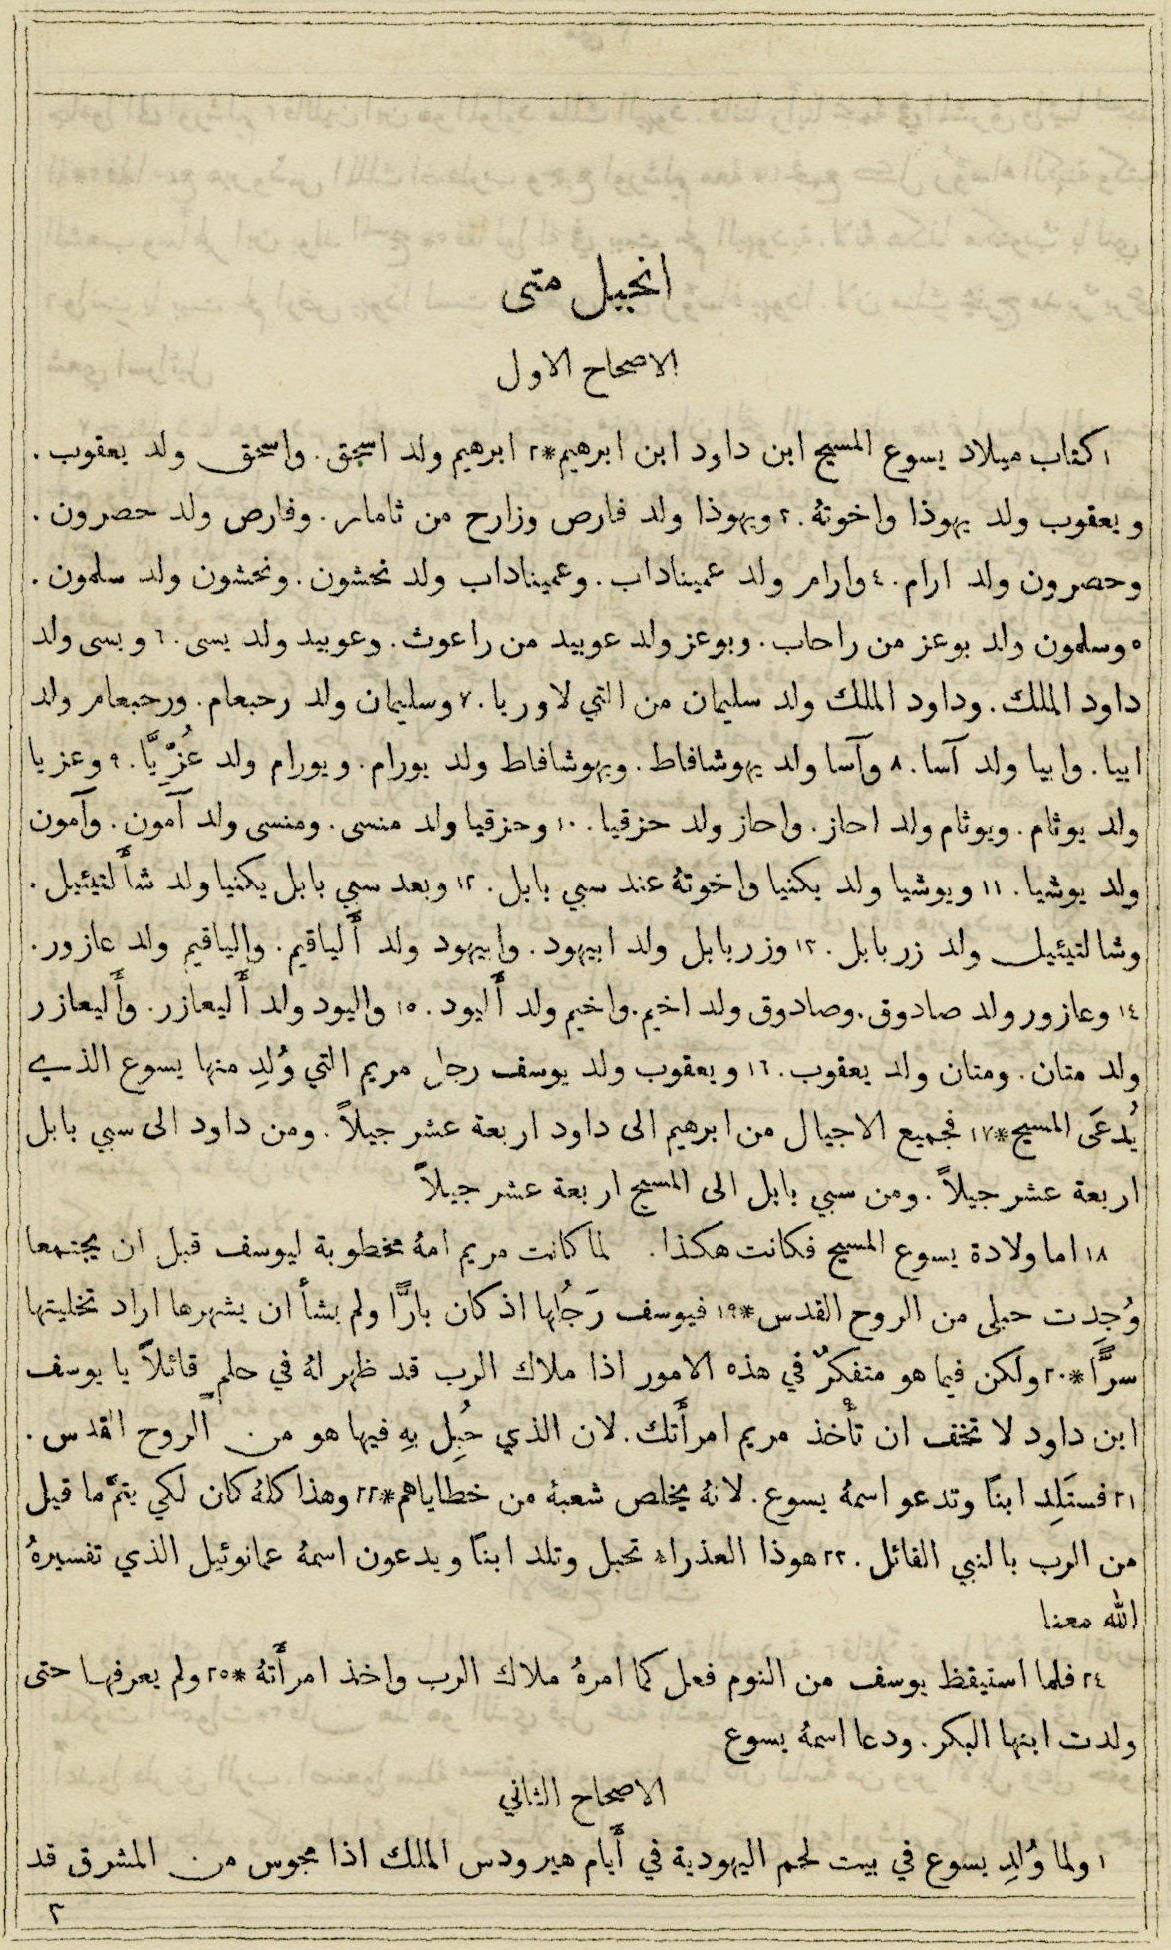 انجيل متى
الاصحاح الاول
١ كتاب ميلاد يسوع المسيح ابن داود ابن ابرهيم * ٢ ابرهيم ولد اسحق. واسحق ولد يعقوب.
ويعقوب ولد يهوذا واخوتهُ. ٣ ويهوذا ولد فارص وزارح من ثامار. وفارص ولد حصرون.
وحصرون ولد ارام. ٤ وارام ولد عميناداب. وعميناداب ولد نحشون. ونحشون ولد سلمون.
٥ وسلمون ولد بوعز من راحاب. وبوعز ولد عوبيد من راعوث. وعوبيد ولد يسى. ٦ ويسى ولد
داود الملك. وداود الملك ولد سليمان من التي لاوريا. ٧ وسليمان ولد رحبعام. ورحبعام ولد
ابيا. وابيا ولد آسا. ٨ وآسا ولد يهوشافاط. ويهوشافاط ولد يورام. ويورام ولد عُزِّيَّا. ٩ وعزيا
ولد يوثام. ويوثام ولد احاز. واحاز ولد حزقيا. ١٠ وحزقيا ولد منسى. ومنسى ولد آمون. وآمون
ولد يوشيا. ١١ ويوشيا ولد يكنيا واخوتهُ عند سبي بابل. ١٢ وبعد سبي بابل يكنيا ولد شأَلتيئيل.
وشالتيئيل ولد زربابل. ١٣ وزربابل ولد ابيهود. وابيهود ولد أَلياقيم. والياقيم ولد عازور.
١٤ وعازور ولد صادوق. وصادوق ولد اخيم. واخيم ولد أَليود. ١٥ واليود ولد أَليعازر. وأَليعازر
ولد متان. ومتان ولد يعقوب. ١٦ ويعقوب ولد يوسف رجل مريم التي وُلِد منها يسوع الذي
يُدعَى المسيح * ١٧ فجميع الاجيال من ابرهيم الى داود اربعة عشر جيلاً. ومن داود الى سبي بابل
اربعة عشر جيلاً. ومن سبي بابل الى المسيح اربعة عشر جيلاً
١٨ اما ولادة يسوع المسيح فكانت هكذا. لما كانت مريم امهُ مخطوبة ليوسف قبل ان يجتمعا
وُجِدت حبلى من الروح القدس * ١٩ فيوسف رَجُلها اذ كان بارًّا ولم يشأ ان يشهرها اراد تخليتها
سرًّا * ٢٠ ولكن فيما هو متفكرٌ في هذه الامور اذا ملاك الرب قد ظهر لهُ في حلمٍ قائلاً يا يوسف
ابن داود لا تخف ان تأْخذ مريم امرأَتك. لان الذي حُبِل بهِ فيها هو من الروح القدس.
٢١ فستَلِد ابنًا وتدعو اسمهُ يسوع. لانهُ يخلص شعبهُ من خطاياهم * ٢٢ وهذا كلهُ كان لكي يتمَّ ما قيل
من الرب بالنبي القائل. ٢٣ هوذا العذراء تحبل وتلد ابنًا ويدعون اسمهُ عمانوئيل الذي تفسيرهُ
الله معنا
٢٤ فلما استيقظ يوسف من النوم فعل كما امرهُ ملاك الرب واخذ امرأَتهُ * ٢٥ ولم يعرفها حتى
ولدت ابنها البكر. ودعا اسمهُ يسوع
الاصحاح الثاني
١ ولما وُلِد يسوع في بيت لحم اليهودية في أَيام هيرودس الملك اذا مجوس من المشرق قد
٣